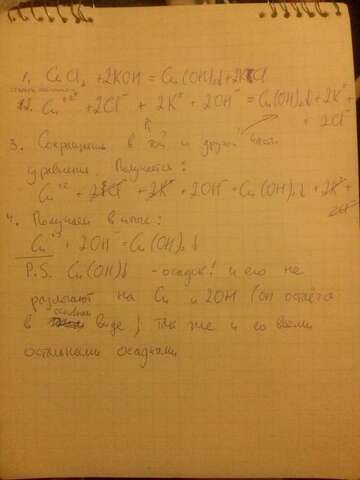 1. CuCl₂ + 2KOH = Cu(OH)₂↓ + 2KCl
2. Cu⁺² + 2Cl⁻ + 2K⁺ + 2OH⁻ = Cu(OH)₂↓ + 2K⁺ +
+ 2Cl⁻
3. Сокращаем в той и другой части
уравнения. Получается:
Cu⁺² + 2Cl⁻ + 2K⁺ + 2OH⁻ = Cu(OH)₂↓ + 2K⁺ +
2Cl⁻
4. Получаем в итоге:
Cu⁺² + 2OH⁻ = Cu(OH)₂↓
P.S. Cu(OH)↓ - осадок! и его не
разлагают на Cu и 2OH (он остаётся
в виде) так же и со всеми
остальными осадками